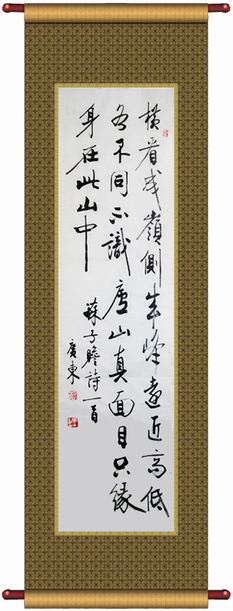 橫看成嶺側成峰遠近高低
各不同不識廬山真面目只緣
身在此山中
蘇子瞻詩一首
廣東